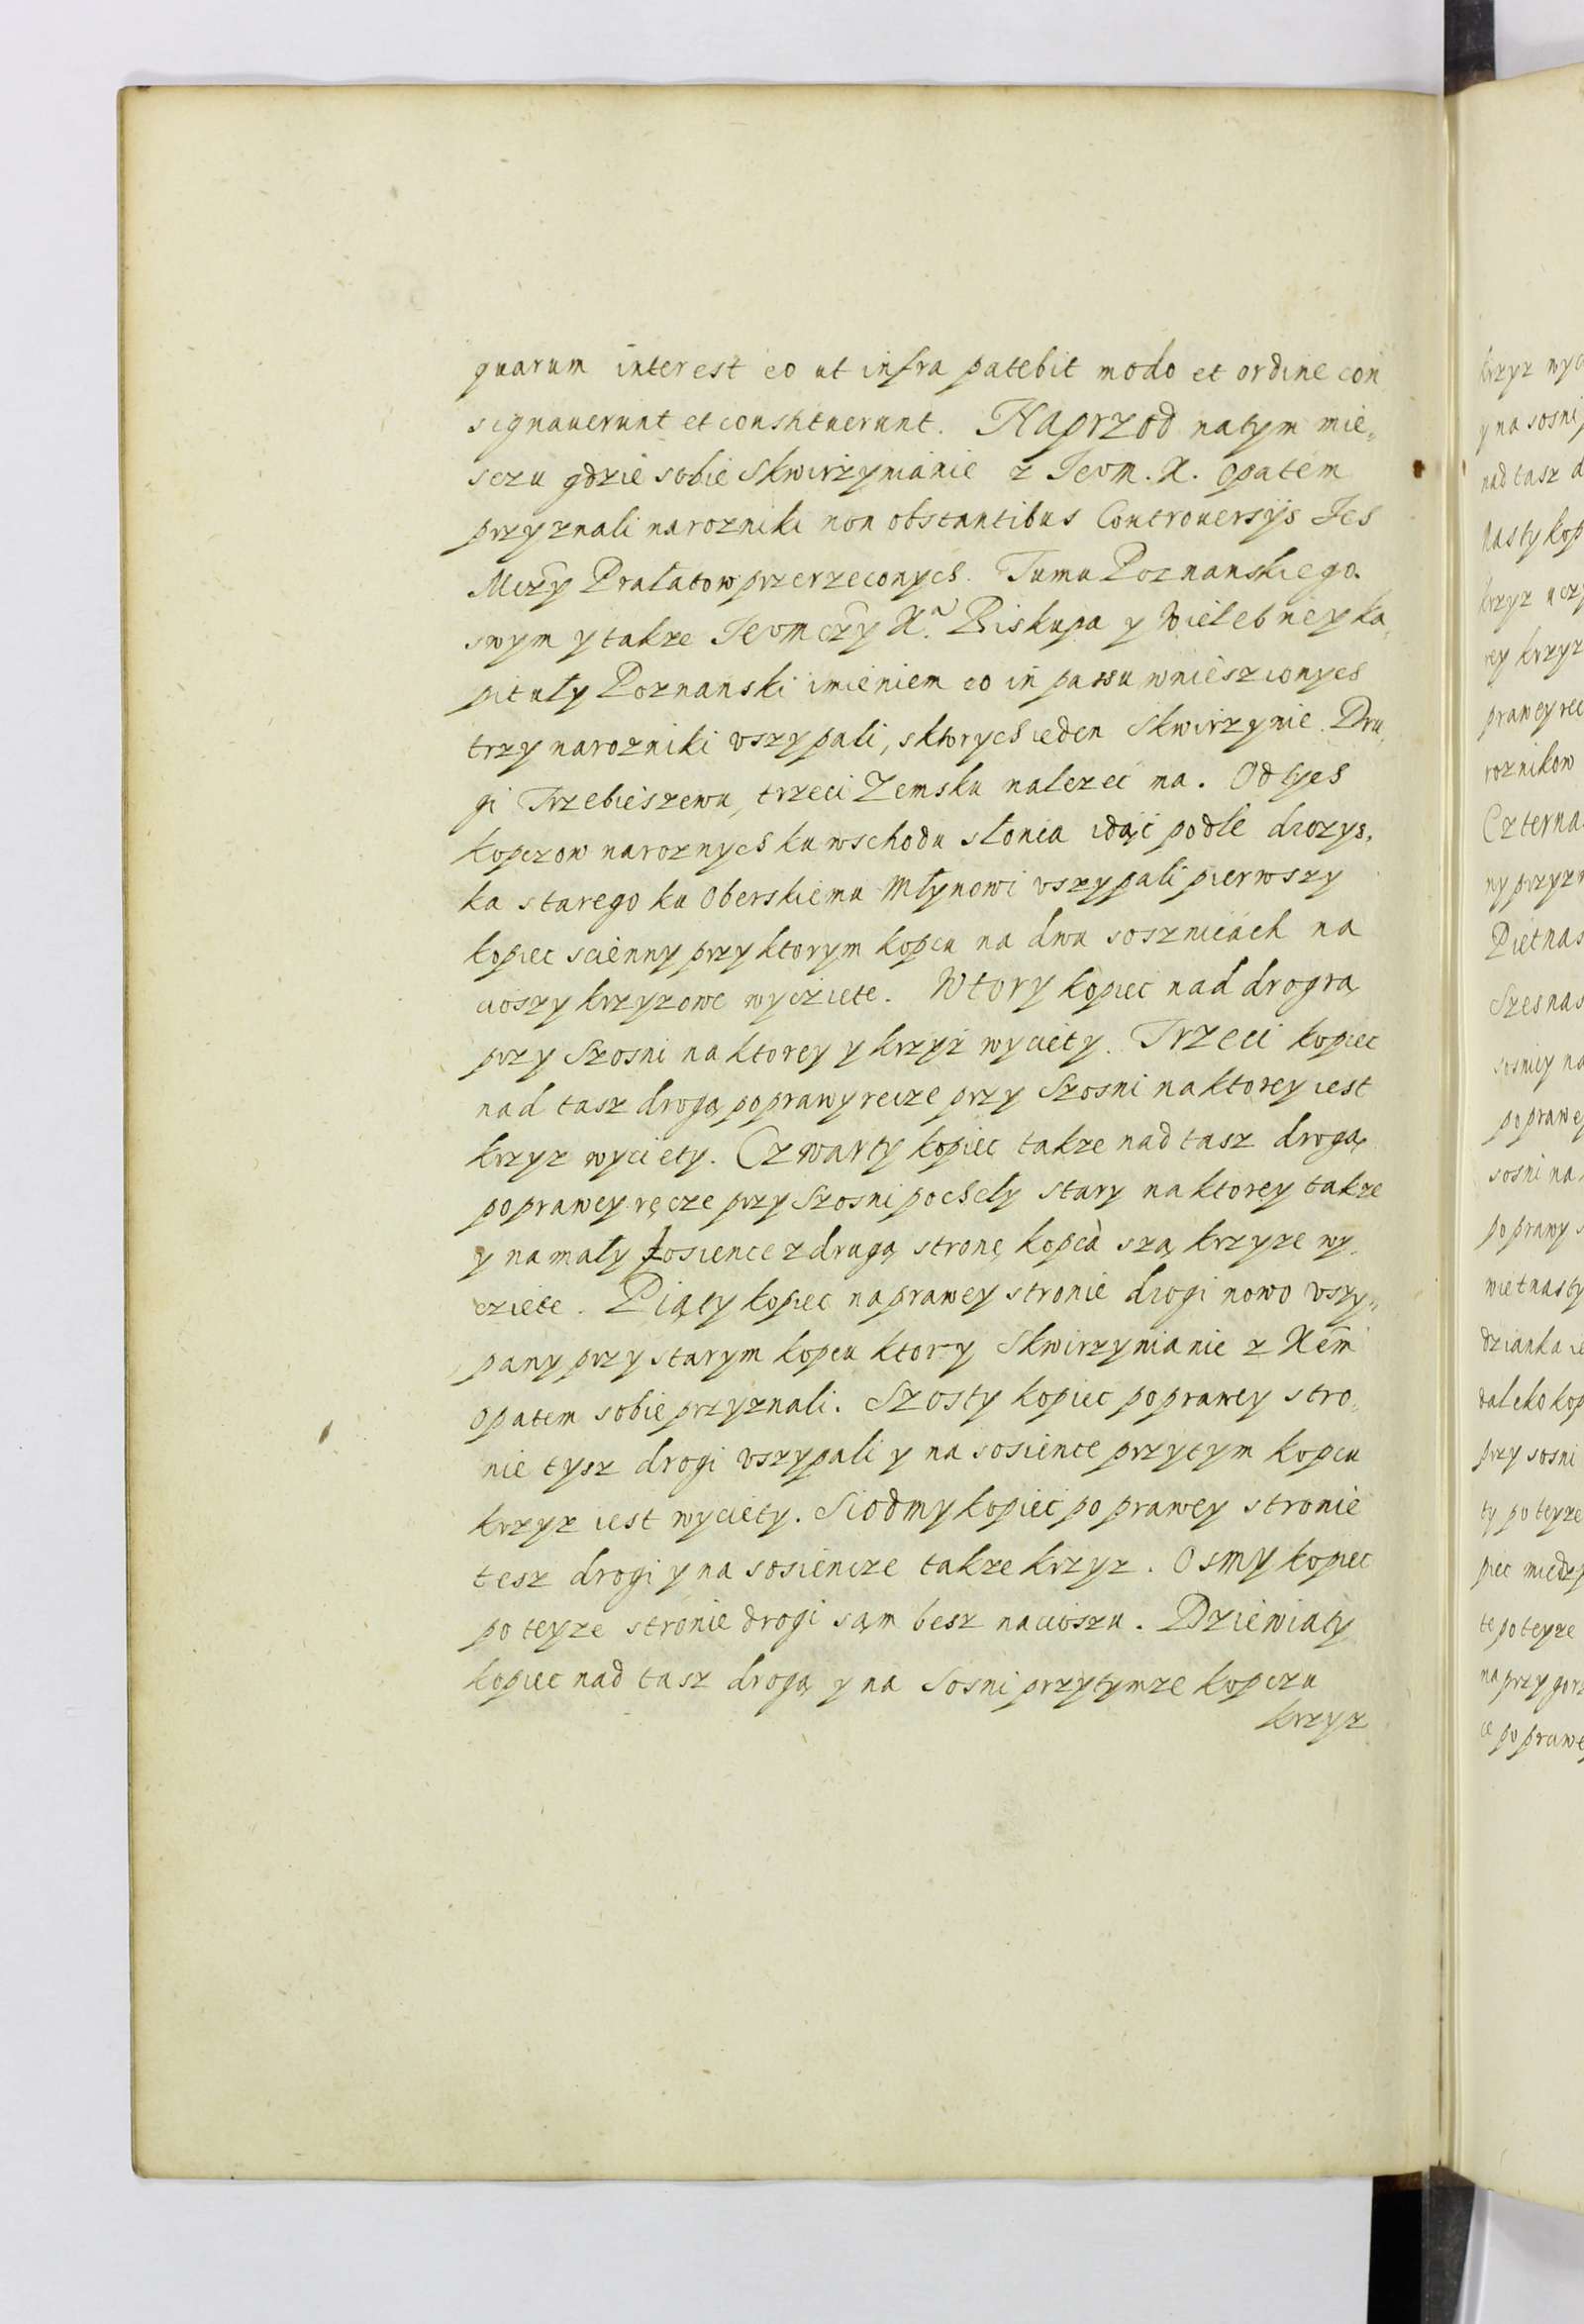 quarum interest eo ut infra patebit modo et ordine con
signauerunt et constituerunt. Naprzod natym mie„
sczu gdzie sobie Skwirzynianie z Jeom. X. opatem
przyznali narozniki non obstantibus Controuersijs Jch
Mczy Prałatow przerzeconych. Tumu Poznanskiego.
swym y takze Jeomczy Xa. Biskupa y Wielebney ka„
pituły Poznanski imieniem eo in passu wnieszionych
trzy narozniki vszypali, sktorych ieden Skwirzynie. Dru„
gi Trzebieszewu, trzeci Zemsku nalezec ma. Od tych
kopczow naroznych ku wschodu słonia idąc podle drozys„
ka starego ku Oberskiemu Młynowi vszypali pierwszy
kopiec scienny przy ktorym kopcu na dwu soszniciach na
cioszy krzyzowe wycziete. Wtory kopiec nad drogrą
przy Szosni na ktorey y krzyz wyciety. Trzeci kopiec
nad tasz drogą poprawy recze przy Szosni naktorey iest
krzyz wyciety. Czwarty kopiec takze nad tasz drogą
poprawey ręcze przy Szosni pochely stary naktorey takze
y na mały sosience z drugą stronę kopca szą krzyze wy„
cziete. Piąty kopiec naprawey stronie drogi nowo vszy„
pany przy starym kopcu ktory Skwirzynianie z Xem
opatem sobie przyznali. Szosty kopiec poprawey stro„
nie tysz drogi vszypali y na sosience przytym kopcu
krzyz iest wyciety. Siodmy kopiec po prawey stronie
tesz drogi y na sosiencze takze krzyz. Osmy kopiec
po teyze stronie drogi sąm besz nacioszu. Dziewiaty
kopiec nad tasz drogą y na Sosni przytymze kopczu
krzyz
krzyz
nad tasz
krzyz
rey krzyz
roznikow
sosni na
przy sosni
po teyze